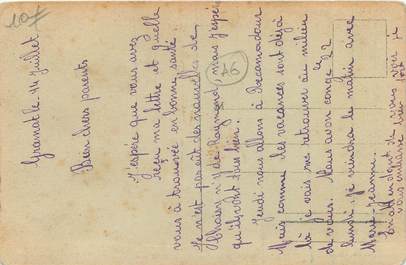 Gramat le 14 Juillet
Bien chers parents
J'espère que vous avez
reçu ma lettre et qu'elle
vous a trouvés en bonne santé.
Je n'est pas eut des nouvelles de
n'y de Raymond, mais J'espère
qu'ils vont tous bien.
Jeudi nous allons à Rocamadour
Mais comme les vacances sont déjà
là je vais me retrouver au milieu
de vous. Nous avon congé le 22
lundi, je viendrai le matin avec
Marie-Jeanne.
En attendant de vous voir je
vous embrasse bien fort
107
46